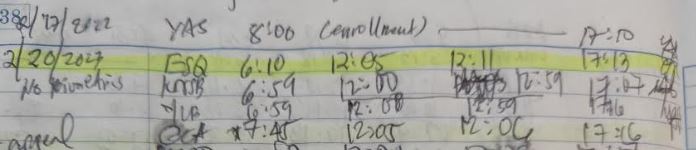 38
2/17/2022 YAS 8:00 (enrollment) 17:10
2/20/2027 ESQ 6:10 12:05 12:11 17:13
No biometrics KMB 6:59 12:00 12:59 17:07
YLB 6:59 12:00 12:59 17:16
7:45 12:05 12:06 17:16